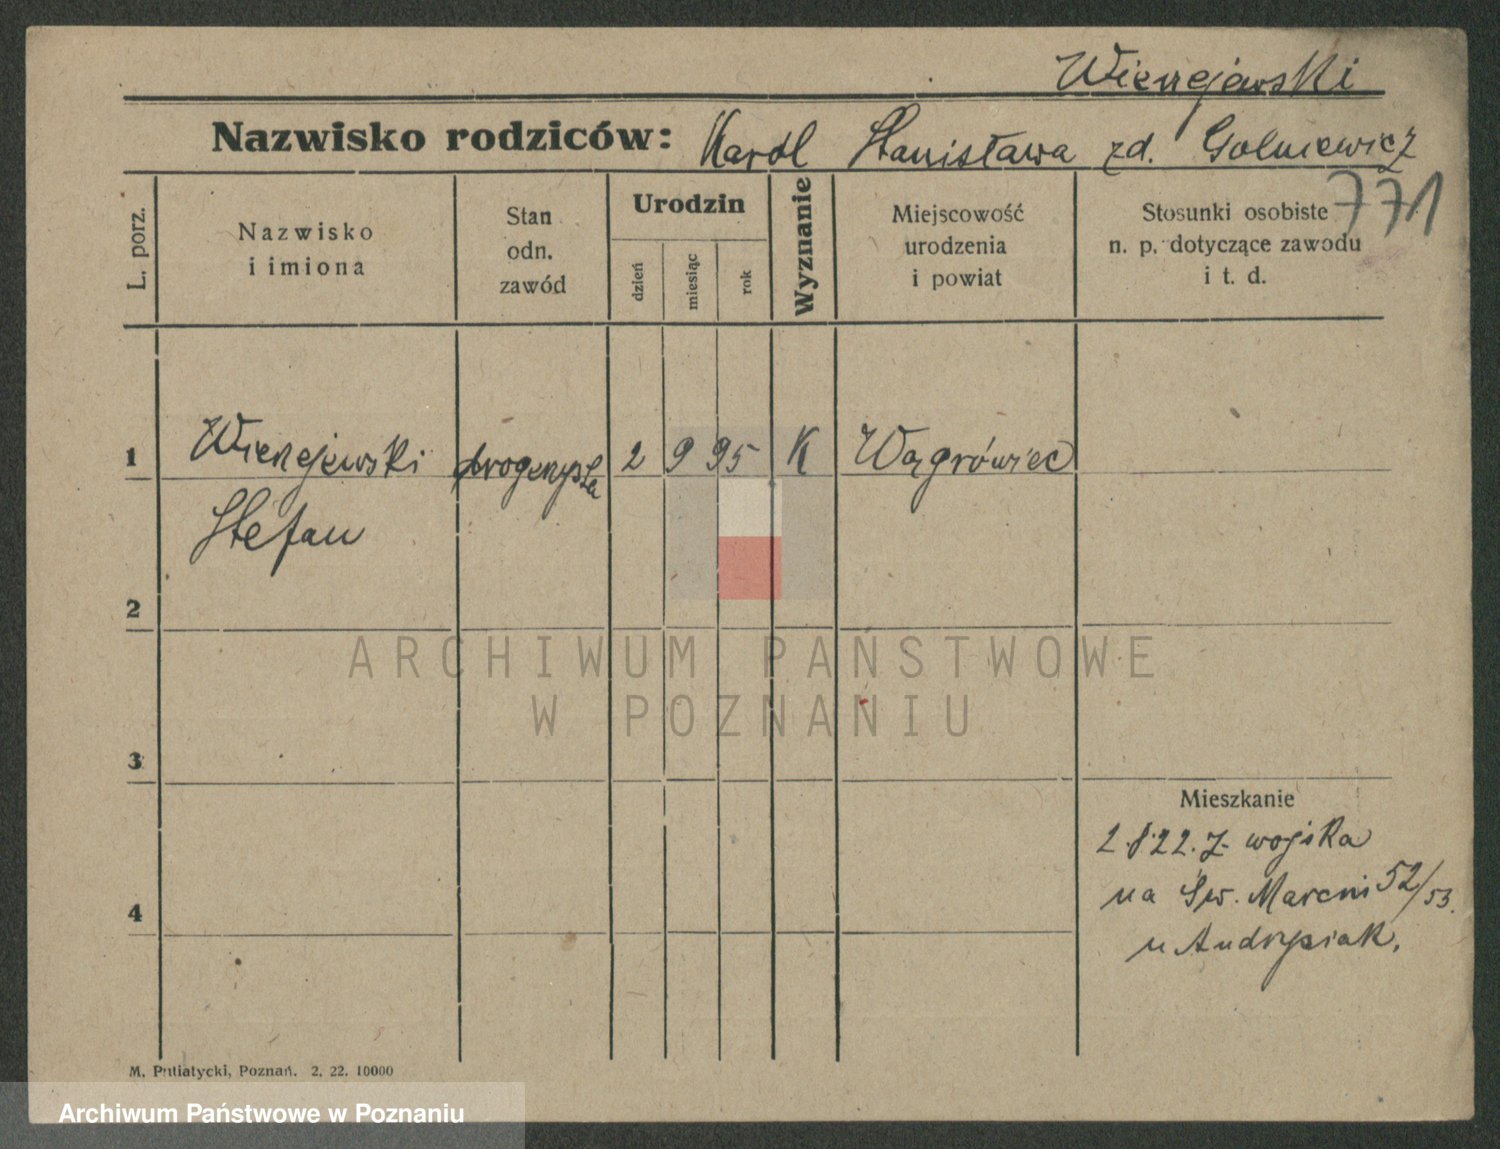 Wierzejewski
Nazwisko rodziców: Karol Stanisława zd. Golniewicz
771
L. porz.
Nazwisko
i imiona
Stan
odn.
zawód
Urodzin
dzień
miesiąc
rok
Wyznanie
Miejscowość
urodzenia
i powiat
Stosunki osobiste
n. p. dotyczące zawodu
i t. d.
1 Wierzejewski drogerzysta 2 9 95 K Wągrówiec
Stefan
2
ARCHIWUM PAŃSTWOWE
W POZNANIU
3
Mieszkanie
2.8.22. z wojska
na Św. Marcin 52/53.
u Andrzejak.
4
M. Putiatycki, Poznań. 2. 22. 10000
Archiwum Państwowe w Poznaniu